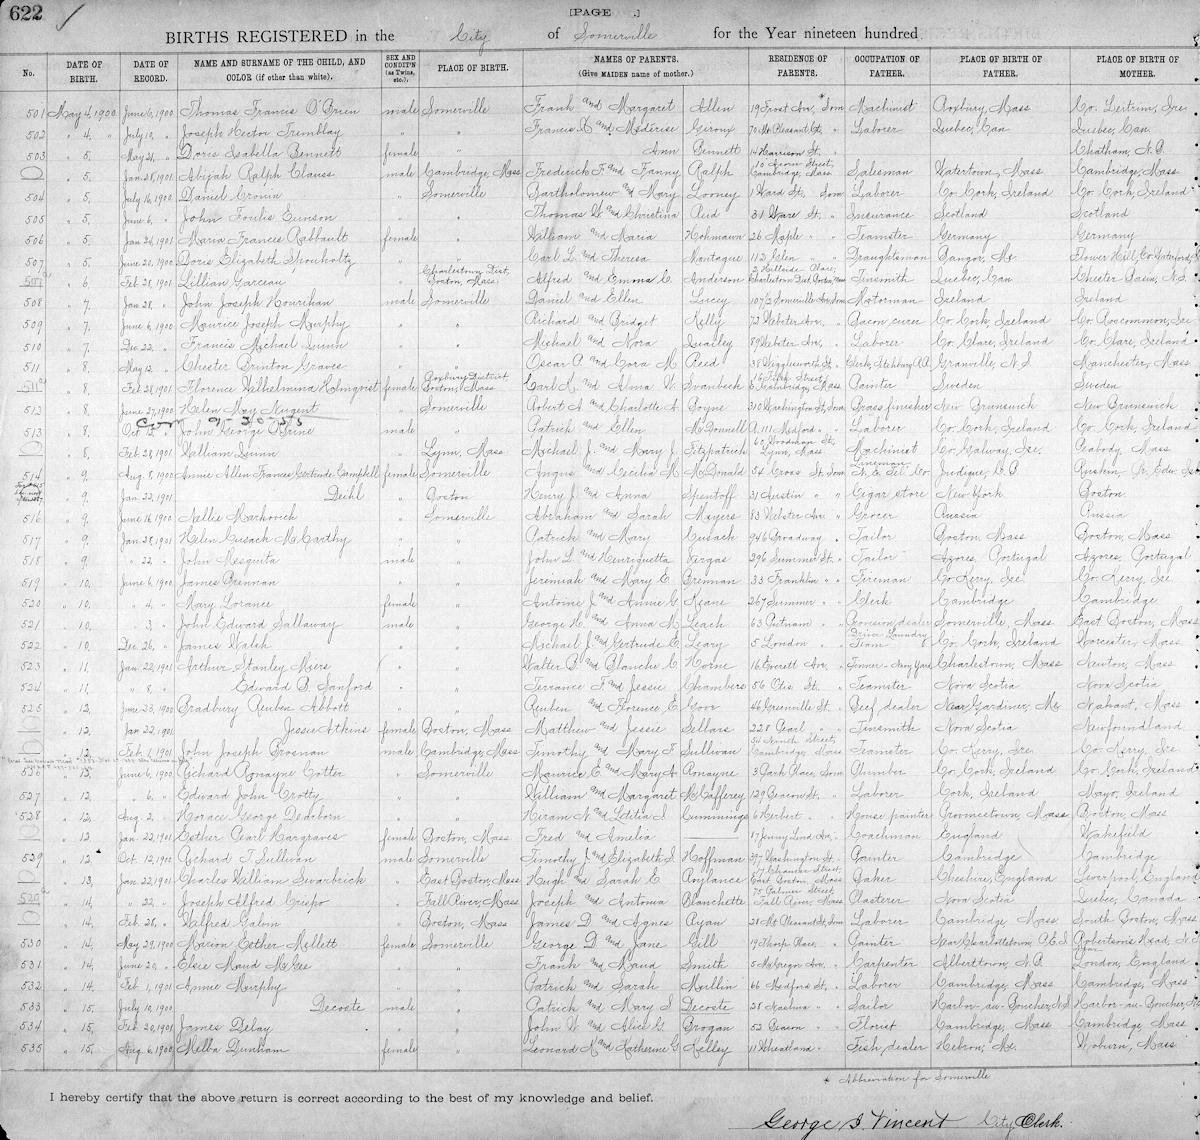 622
[PAGE .]
BIRTHS REGISTERED in the City of Somerville for the Year nineteen hundred
No. DATE OF BIRTH. DATE OF RECORD. NAME AND SURNAME OF THE CHILD, AND COLOR (if other than white). SEX AND CONDIT'N (as Twins, etc.). PLACE OF BIRTH. NAMES OF PARENTS. (Give MAIDEN name of mother.) RESIDENCE OF PARENTS. OCCUPATION OF FATHER. PLACE OF BIRTH OF FATHER. PLACE OF BIRTH OF MOTHER.
501 May 4, 1900 June 6, 1900 Thomas Francis O'Brien male Somerville Frank and Margaret Allen 19 Frost Av., *Som Machinist Roxbury, Mass Co. Leitrim, Ire
502 " 4, " July 10, " Joseph Hector Tremblay " " Francis X and Médérise Giroux 70 Mt Pleasant St., " Laborer Quebec, Can Quebec, Can.
503 " 5, May 21, " Doris Isabella Bennett female " Ann Bennett 14 Harrison St. Chatham, N.B.
" 5, Jan. 28, 1901 Abijah Ralph Clauss male Cambridge, Mass Frederick F. and Fanny Ralph 10 Acorn Street, Cambridge, Mass Salesman Watertown, Mass Cambridge, Mass
504 " 5, July 16, 1900 Daniel Cronin " Somerville Bartholomew and Mary Looney 1 Ward St., Som Laborer Co. Cork, Ireland Co. Cork, Ireland
505 " 5, June 6, " John Foulis Eunson " " Thomas G. and Christina Reid 31 Ware St. " Insurance Scotland Scotland
506 " 5, Jan 24, 1901 Maria Francis Rabbault female " William and Maria Hohmann 26 Maple " " Teamster Germany Germany
507 " 5, June 20, 1900 Doris Elizabeth Shouholtz " " Carl L. and Theresa Montague 112 Glen " " Draughtsman Bangor, Me. Flower Hill, Co Waterford, I
507a " 6 Feb 28, 1901 Lillian Garceau " Charlestown Dist, Boston, Mass Alfred and Emma C. Anderson 2 Hillside Place, Charlestown Dist. Boston Mass Tinsmith Quebec, Can Chester Basin, N.S.
508 " 7, Jan 28, " John Joseph Hourihan male Somerville Daniel and Ellen Lucey 107/2 Somerville Av., Som Motorman Ireland Ireland
509 " 7, June 6, 1900 Maurice Joseph Murphy " " Richard and Bridget Kelly 72 Webster Av., " Bacon curer Co. Cork, Ireland Co. Roscommon, Ire
510 " 7, Dec 22, " Francis Michael Quinn " " Michael and Nora Quailey 89 Webster Av., " Laborer Co. Clare, Ireland Co. Clare, Ireland
511 " 8, May 12, " Chester Brinton Graves " " Oscar A. and Cora M Reed 38 Wigglesworth St., " Clerk, Fitchburg R.R. Granville, N.S Manchester, Mass
511a " 8 Feb 28, 1901 Florence Wilhelmina Holmqvist female Roxbury District Boston, Mass Carl K. and Alma W. Svanbeck 16 Fifth Street, E. Cambridge, Mass Painter Sweden Sweden
512 " 8, June 27, 1900 Helen May Nugent " Somerville Robert A. and Charlotte A. Boyne 310 Washington St., Som Brass finisher New Brunswick New Brunswick
513 " 8, Oct 15, " John George O'Brine male " Patrick and Ellen McDonnell R. 111 Medford " " Laborer Co. Cork, Ireland Co. Cork, Ireland
" 8, Feb 28, 1901 William Quinn " Lynn, Mass Michael J. and Mary J. Fitzpatrick 60 Woodman St., Lynn, Mass Machinist Co. Galway, Ire. Peabody, Mass
514 " 9, Aug 8, 1900 Annie Allen Frances Gertrude Campbell female Somerville Angus and Cecilia M McDonald 54 Cross St. Som Lineman N. E. Tel. Co. Judique, C.B
" 9, Jan 22, 1901 Deihl " Boston Henry J. and Anna Spentoff 31 Austin " " Cigar store New York Boston
516 " 9, June 16, 1900 Nellie Markovich " Somerville Abraham and Sarah Meyers 83 Webster Av. " Grocer Russia Russia
517 " 9, Jan 28, 1901 Helen Cusach McCarthy " " Patrick and Mary Cusach 946 Broadway " Tailor Boston, Mass Boston, Mass
518 " 9, " 22, " John Mesquita male " John L. and Henriquetta Vergas 296 Summer St. " Tailor Azores, Portugal Azores, Portugal
519 " 10, June 6, 1900 James Brennan " " Jeremiah and Mary E. Brennan 33 Franklin " " Fireman Co. Kerry, Ire Co. Kerry, Ire
520 " 10, " 4, " Mary Loranee female " Antoine J. and Annie G. Keane 267 Summer " " Clerk Cambridge Cambridge
521 " 10, " 3, " John Edward Sallaway male " George H. and Anna M Leach 63 Putnam " " Provision dealer Somerville, Mass East Boston, Mass
522 " 10, Dec 26, " James Walsh " " Michael J. and Gertrude E. Leary 5 London " " Driver Laundry Team Co. Cork, Ireland Worcester, Mass
523 " 11, Jan. 22, 1901 Arthur Stanley Myers " " Walter B. and Blanche E. Horne 16 Everett Av., " Joiner-Navy Yard Charlestown, Mass Newton, Mass
524 " 11, " 8, " Edward B. Sanford " " Terrance F. and Jessie Chambers 56 Otis St. " Teamster Nova Scotia Nova Scotia
525 " 12, June 23, 1900 Bradbury Reuben Abbott " " Reuben and Florence E Goor 46 Greenville St. " Beef dealer Near Gardiner, Me. Nahant, Mass
" 12, Jan 22, 1901 Jessie Atkins female Boston, Mass Matthew and Jessie Sellars 228 Pearl " " Tinsmith Nova Scotia Newfoundland
" 12, Feb 1, 1901 John Joseph Brosnan male Cambridge, Mass Timothy and Mary T. Sullivan 54 Ninth Street, Cambridge, Mass Teamster Co. Kerry, Ire. Co. Kerry, Ire
526 " 13, June 6, 1900 Richard Ronayne Cotter " Somerville Maurice E. and Mary A. Ronayne 3 Park Place, Som Plumber Co. Cork, Ireland Co. Cork, Ireland
527 " 12, " 6, " Edward John Crotty " " William and Margaret McCafferey 129 Beacon St. " Laborer Cork, Ireland Mayo, Ireland
528 " 12, Aug 2, " Horace George Dearborn " " Hiram N. and Letitia I Cummings 6 Herbert " " House painter Provincetown, Mass Boston, Mass
" 12, Jan 22, 1901 Esther Pearl Hargraves female Boston, Mass Fred and Amelia 17 Jenny Lind Av., " Coachman England Wakefield
529 " 12, Oct. 12, 1900 Richard T. Sullivan male Somerville Timothy J. and Elizabeth S. Hoffman 397 Washington St. " Painter Cambridge Cambridge
" 13, Jan. 22, 1901 Charles William Swarbrick " East Boston, Mass Hugh and Sarah E Roylance East Boston, Mass Baker Cheshire, England Liverpool, England
529a " 14, " 22, " Joseph Alfred Crispo " Fall River, Mass Joseph and Antonia Blanchette 75 Palmer Street, Fall River, Mass Plasterer Nova Scotia Quebec, Canada
" 14, Feb 28, " Wilfred Galvin " Boston, Mass James D. and Agnes Ryan 28 Mt. Pleasant St., Som Laborer Cambridge, Mass South Boston, Mass
530 " 14, May 29, 1900 Marion Esther Mellett female Somerville George D and Jane Gill 19 Thorp Place, " Painter Near Charlottetown, P.E.I Robertson's Road, N.B
531 " 14, June 20, " Elsie Maud McGee " " Frank and Maud Smith 5 McGregor Av., " Carpenter Alberttown, N.B. London, England
532 " 14, Feb 1, 1901 Annie Murphy " " Patrick and Sarah Mullin 66 Medford St., " Laborer Cambridge, Mass Cambridge, Mass
533 " 15, July 10, 1900 Decoste male " Patrick and Mary S. Decoste 28 Nashua " " Sailor Harbor-au-Boucher, N.S Harbor-au-Boucher, N.S
534 " 15, Feb 20, 1901 James Delay " " John W. and Alice G. Brogan 52 Beacon " " Florist Cambridge, Mass Cambridge, Mass
535 " 15, Aug 6, 1900 Melba Dunham female " Leonard H. and Katherine G. Kelley 11 Wheatland " " Fish dealer Hebron, Me. Woburn, Mass
* Abbreviation for Somerville
I hereby certify that the above return is correct according to the best of my knowledge and belief.
George I. Vincent City Clerk.